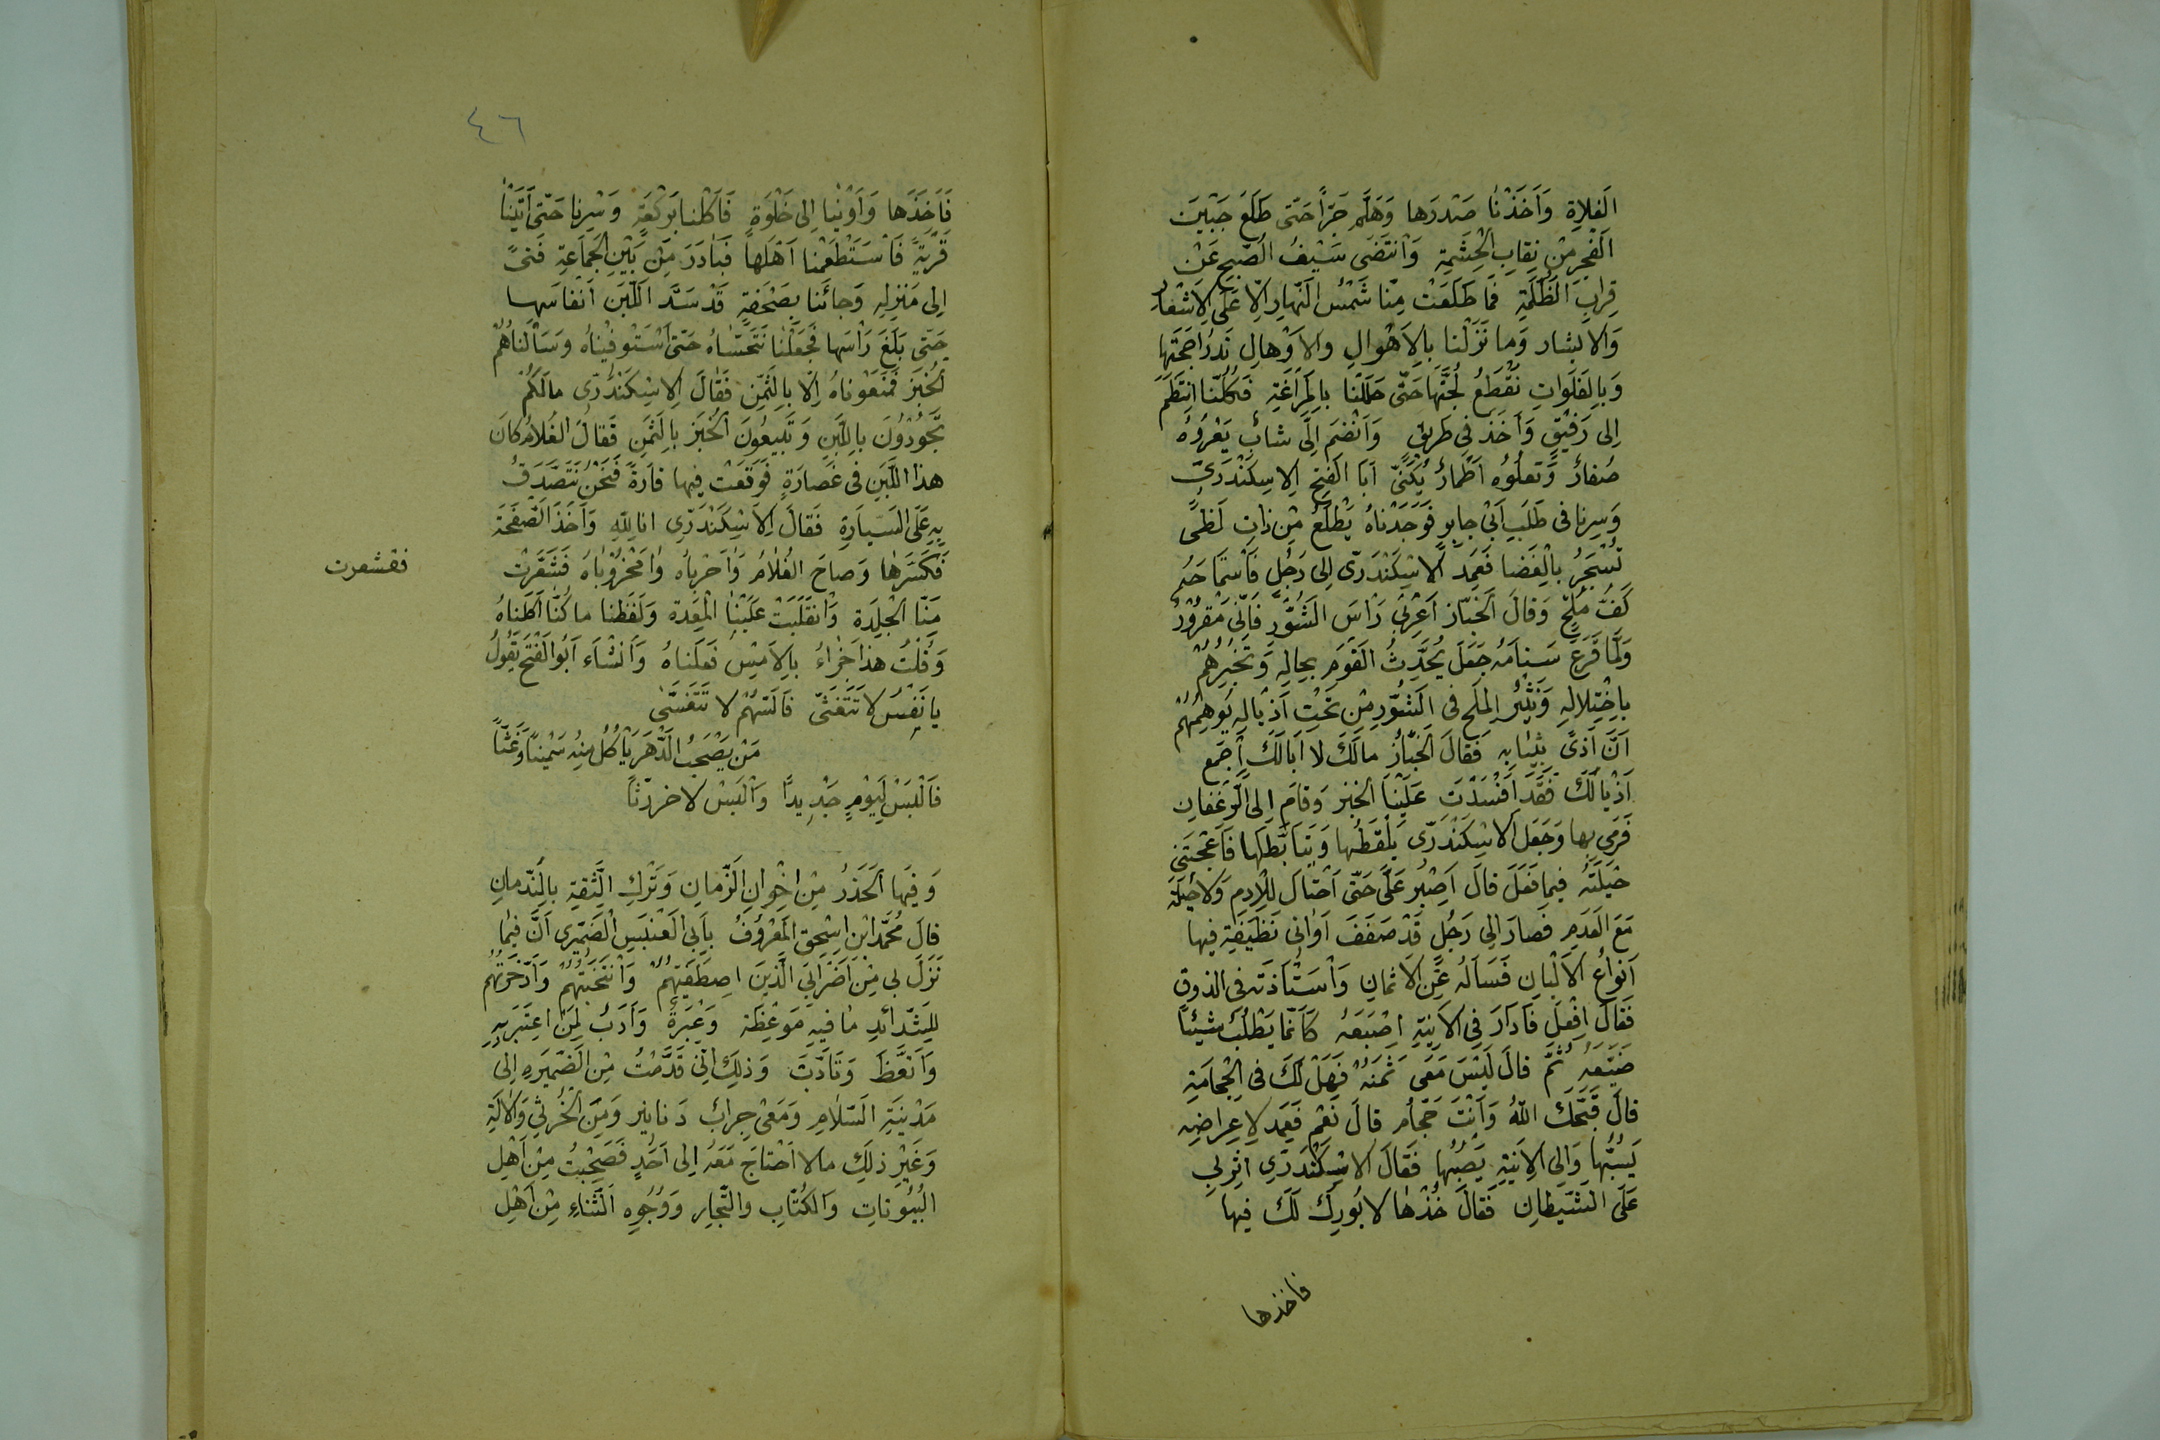 الفلاة وَأَخَذْنَا صَدْرَها وَهَلُمَّ جَرّاً حَتّى طَلَعَ جَبْيِنَ
الفَجرِ مْنِ نِقابِ الْحِشْمَةِ وَانْتَضَى سَيْفُ الصُبّحِ عَنْ
قِرابِ الظُلْمَةِ فَمَا طَلَعَتْ مِنّا شَمْسُ النَّهارِ إلّا عَلَى الاَشْعار
وَالابشار وَما نَزَلْنا بِالاَهْوالِ والاَوْهالِ نَدْرَاُ حُجَّتَها
وَبِالفَلَواتِ نَقْطَعُ لُجَّتَهَا حَتّى حَلَلْنا بِالمَراغَةِ فَكُلّنا انتَظَمَ
إلى رَفيْقٍ وَأَخَذَ فِي طَرِيقٍ وَانْضَمَ اِلَىَّ شابّ يَعْرُوُه
صُفارٌ وَتعلُوُه اَطْمارٌ يُكَنّى اَبَا الفَتحِ الاِسِكَنْدَرىّ
وَسِرنا فى طَلَبِ اَبىْ جابِرٍ فَوَجَدْناهُ يَطْلَعُ مْنِ ذاتِ لَظىً
تُسْجَرُ بِالْغَضَا فَعَمِدَ الاسْكَنْدَرىّ إلى رَجُلٍ فَاسْتَماحَهُ
كَفَّ مِلْحٍ وَقالَ الخَبّاز اَعْرِنىْ رَاْسَ التَنُّوُر فَاِنّى مَقْرُوْرٌ
وَلَمّا فَرَعَ سَنامَهُ جَعَلَ يُحَدِّثُ القَوْمَ بِحالِهِ وَيُخْبِرُهُمْ
بِاخْتِلالِهِ وَيَنْثُر المِلْحَ فى التَنّوُرِ مْنِ تَحْتِ اَذيالِهِ يُوهِمُهُمْ
اَنَّ اَذىً بِثيابِه فَقالَ الخَبّازُ مالَكَ لا اَبالَكَ اَجْمِع
اَذْيالَكَ فَقَدْ اَفْسَدْتَ عَلَيْنَا الخبز وَقامَ اِلى الرُّغَفانِ
فَرَمى بِها وَجَعَلَ الاسْكَنْدَرّى يَلْقَطُها وَيَتَاَبَّطَها فَاَعْجَبَتنى
حَيْلَتُهُ فيما فَعَلَ قالَ اَصْبِر عَلَىَّ حَتّى اَحْتالَ لِلْاِدم وَلا حيْلَةَ
مَعَ العَدَمِ فَصارَ إلى رَجُلٍ قَدْ صَفَفَ اَوانى نَظيفَةٍ فِيها
اَنواعُ الاَلْبانِ فَسَأَلهُ عَنِ الاَثمانِ وَاسْتأذَنَه فى الذوقِ
فَقالَ اِفْعَل فَاَدارَ فِى الآنِيَةِ اِصْبَعَهُ كَاَنَّما يَطْلُبُ شيْئاً
ضَيَّعَهُ ثُمَّ قالَ لَيْسَ مَعَى ثَمَنَهُ فَهَلْ لَكَ فى الْحِجامَةِ
قالَ قَبَّحَكَ اللهُ وَاَنْتَ حَجّام قالَ نَعْم فَعَمَدَ لِاعِراضِهِ
يَسُبُّها وَاِلى الآنِيَةِ يَصُبُّها فَقالَ الاسْكَنْدَرّى آثِرْنى
عَلَى الشَيْطانِ فَقالَ خُذْها لا بُورِكَ لَكَ فيها
فاخذها
٤٦
فَاَخَذَها وَاَوَيْنا اِلى خَلْوَةٍ فَاَكَلْنا بَرَكْعَةٍ وَسِرنا حَتّى اَتَيْنا
قَرْيَةً فَاسْتَطْعَمْنا اَهْلَها فَبادَرَ مِنْ بَيْنِ الجَمَاعَةِ فَتىً
إلى مَنزِلِهِ وَجائَنا بِصَحْفَةٍ قَدْ سَدَّ اللَّبَن اَنفاسَها
حَتّى بَلَغَ رَاْسَها فَجَعَلْنا نَتَحَسّاهُ حَتّى اسْتَوفيْناهُ وَسَأَلْناهُمُ
الخُبْزَ فَمَنَعْوناهُ اِلّا بِالثَمَّنِ فَقالَ الاِسْكَندَرّى مالَكُمْ
تَجُودُونَ بِاللّبَنِ وَتَبيعُونَ الخُبْزَ بِالثَمَنِ فَقالَ الغُلامُ كانَ
هذا اللَّبَنِ فى غَضارَةٍ فَوَقَعَتْ فِيها فارَةٌ فَنَحْنُ نَتَصَدَقُ
بِهِ عَلَى السَيارَةِ فَقالَ الاِسْكَنْدَرّى انا لِلّهِ وَاَخَذَ الصَّفحَةَ
فَكَسَرَها وَصاحَ الغُلامُ وَاحَرباهُ وامَحْرُوباهُ فَشَقَرّت
مِنّا الْجِلْدَة وَانْقَلَبَتْ عَلَيْنا الْمِعْدة وَلَفَظْنا ما كُنّا اَكَلْناهُ
وَقُلْتُ هذا جَزاءُ بِالاَمْسِ فَعَلْناهُ وَاَنْشَاَء اَبُو الفَتْحِ يَقُولُ
يا نَفْسُ لا تَتَغَثّى فَالشَهْمُ لا تَتَغَثّى
مَنْ يَصْحَبُ الدَّهَرَ يَاْكُلُ مِنهُ سَمْيِناً وَغَثّاً
فَالْبَسْ لِيَوْمٍ جَدْيِداً وَالْبَسْ لآخر رَثّاً
وَفيها الْحَذَرُ مِن اِخْوانِ الزّمانِ وَتَرْكِ الثِّقَةِ بِالنّدمانِ
قالَ مُحَمّد ابْنِ اِسْحق المَعْرُوَفُ بِاَبِى العَنْبَسِ الصَّمَيرى اَنَّ فيما
نَزَلَ بى مِنْ اَضرَابَىَ الَّذينَ اصطَفَيتهُم وَانْتَخَبْتُهُمْ وَادّخَرتُهُم
لِلشّدائدِ ما فيهِ مَوْعِظَة وَعِبَرةٌ وَاَدَبُ لِمَنْ اعتَبَر بِهِ
وَاَتَعَّظَ وَتَاَدَّبَ وَذلِكَ اَنّى قَدَّمْتُ مْنِ الصَّمَيَرهِ إلى
مَدْينَةِ السّلامِ وَمَعىْ جِرابُ دَنانِير وَمِنَ الخُرثىِ وَالآلَةِ
وَغَيْرِ ذلِكَ مالا احْتاجَ مَعَهُ إلى اَحَدٍ فَصَحْبِتُ مْنِ اَهْلِ
البُيوُتاتِ وَالكُتّابِ والتّجارِ وَوُجُوه الثَّناءِ مْنِ اَهْلِ
فقشعرت